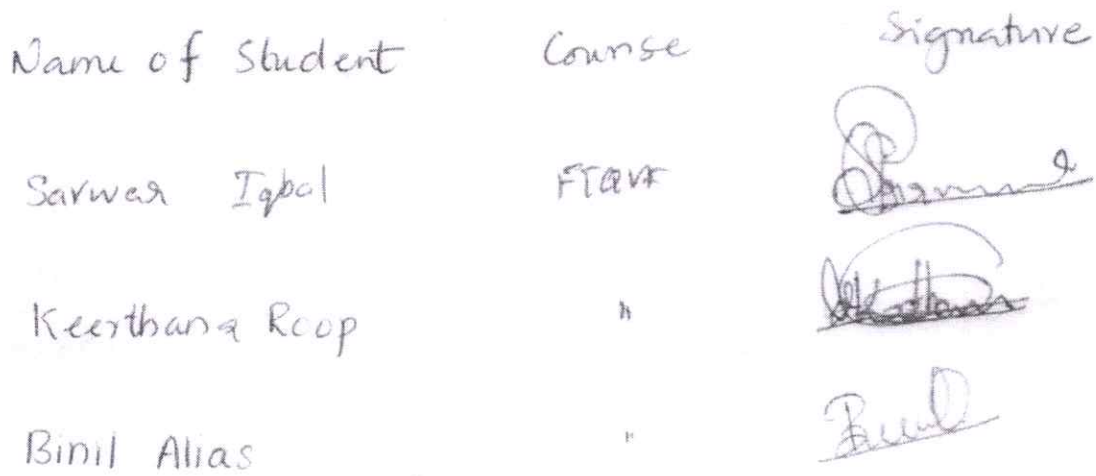 Name of Student Course Signature
Sarwar Iqbal
Keerthana Roop "
Binil Alias "